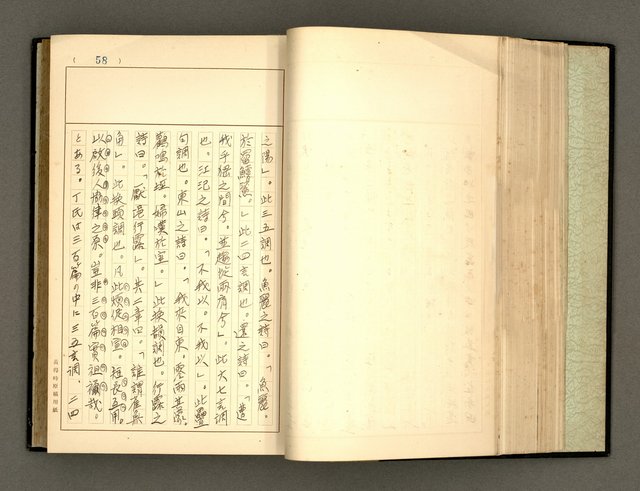 ( 58 )
之陽」。此三五調也。魚麗之詩曰。「魚麗。
於罶鱨鯊。」此二四言調也。還之詩曰。「遭
我乎峱之間兮。並驅從兩肩兮」。此六七言調
也。江汜之詩曰。「不我以。不我以」。此疊
句調也。東山之詩曰。「我來自東。零雨其濛。
鸛鳴於垤。婦嘆於室。」此換韻調也。行露之
詩曰。「厭浥行露」。其二章曰。「誰謂雀無
角」。此換頭調也。凡此煩促相宣。短長互用。
以啟後人協律之原。豈非三百篇實祖禰哉。
とある。丁氏は三百篇の中に三五言調、二四
高得時原稿用紙